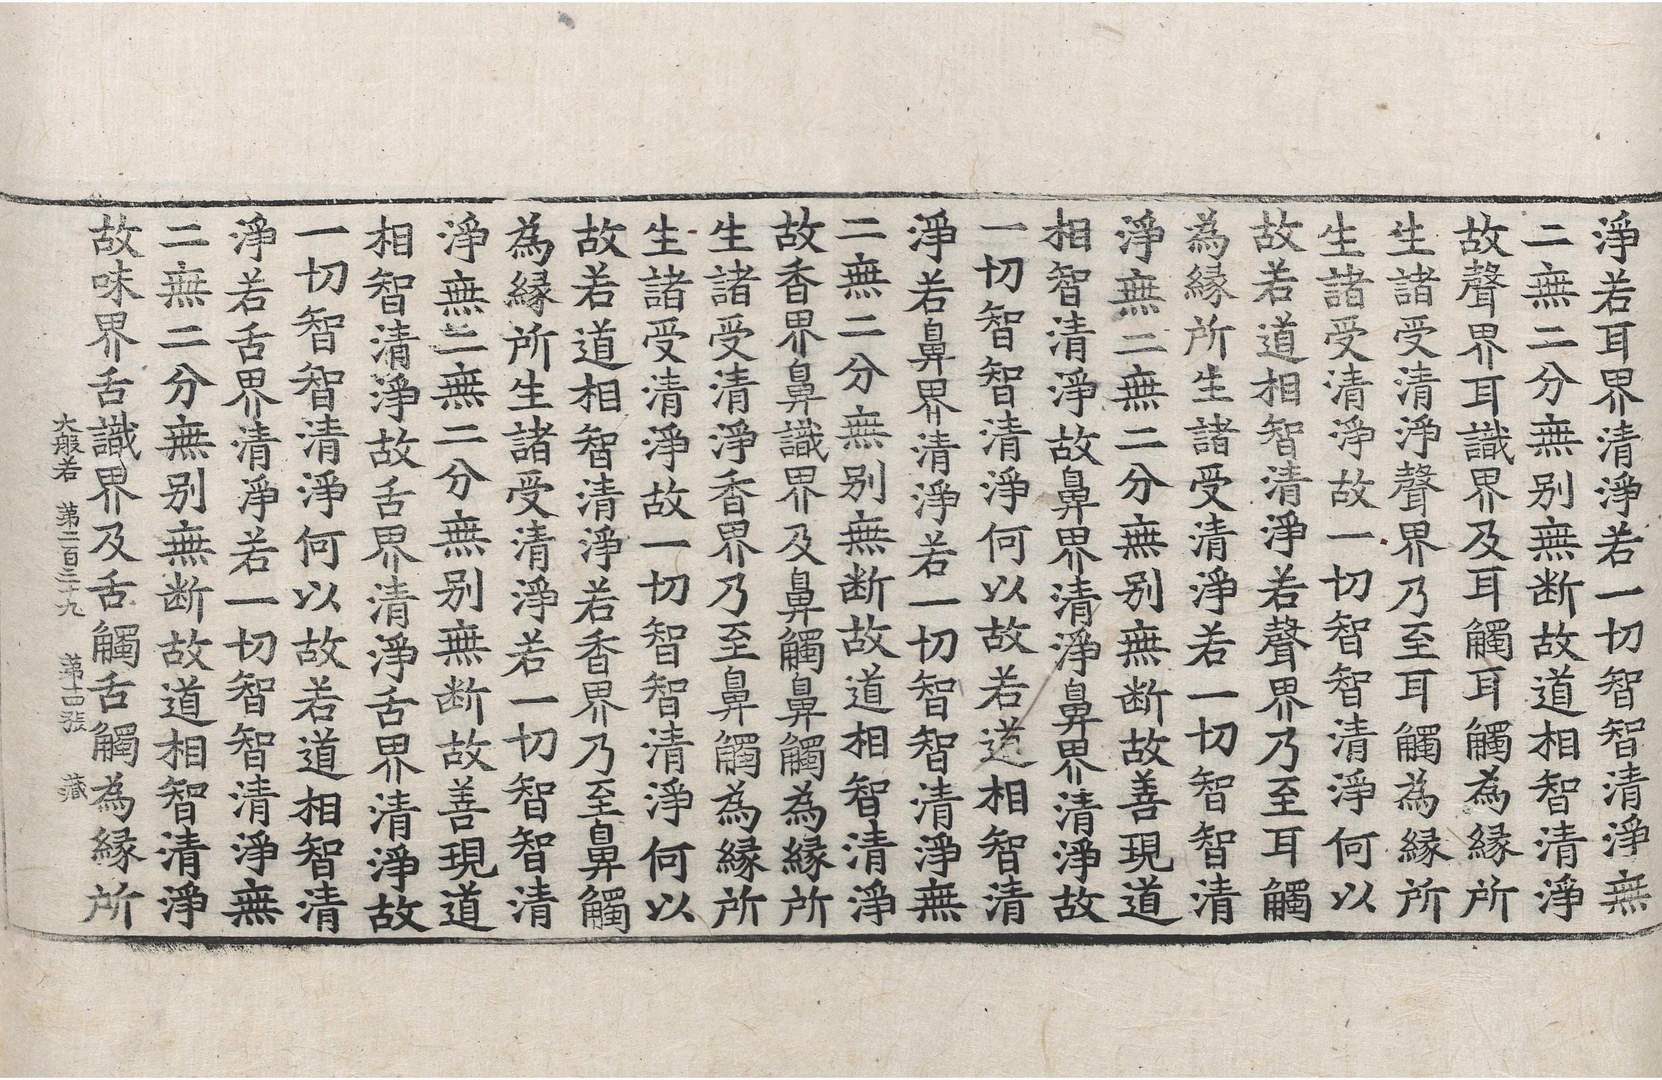 淨若耳界清淨若一切智智清淨無
二無二分無别無断故道相智清淨
故聲界耳識界及耳觸耳觸為縁所
生諸受清淨聲界乃至耳觸為縁所
生諸受清淨故一切智智清淨何以
故若道相智清淨若聲界乃至耳觸
為縁所生諸受清淨若一切智智清
淨無二無二分無别無断故善現道
相智清淨故鼻界清淨鼻界清淨故
一切智智清淨何以故若道相智清
淨若鼻界清淨若一切智智清淨無
二無二分無别無断故道相智清淨
故香界鼻識界及鼻觸鼻觸為縁所
生諸受清淨香界乃至鼻觸為縁所
生諸受清淨故一切智智清淨何以
故若道相智清淨若香界乃至鼻觸
為縁所生諸受清淨若一切智智清
淨無二無二分無别無断故善現道
相智清淨故舌界清淨舌界清淨故
一切智智清淨何以故若道相智清
淨若舌界清淨若一切智智清淨無
二無二分無别無断故道相智清淨
故味界舌識界及舌觸舌觸為縁所
大般若 第二百三十九 第十四張 藏